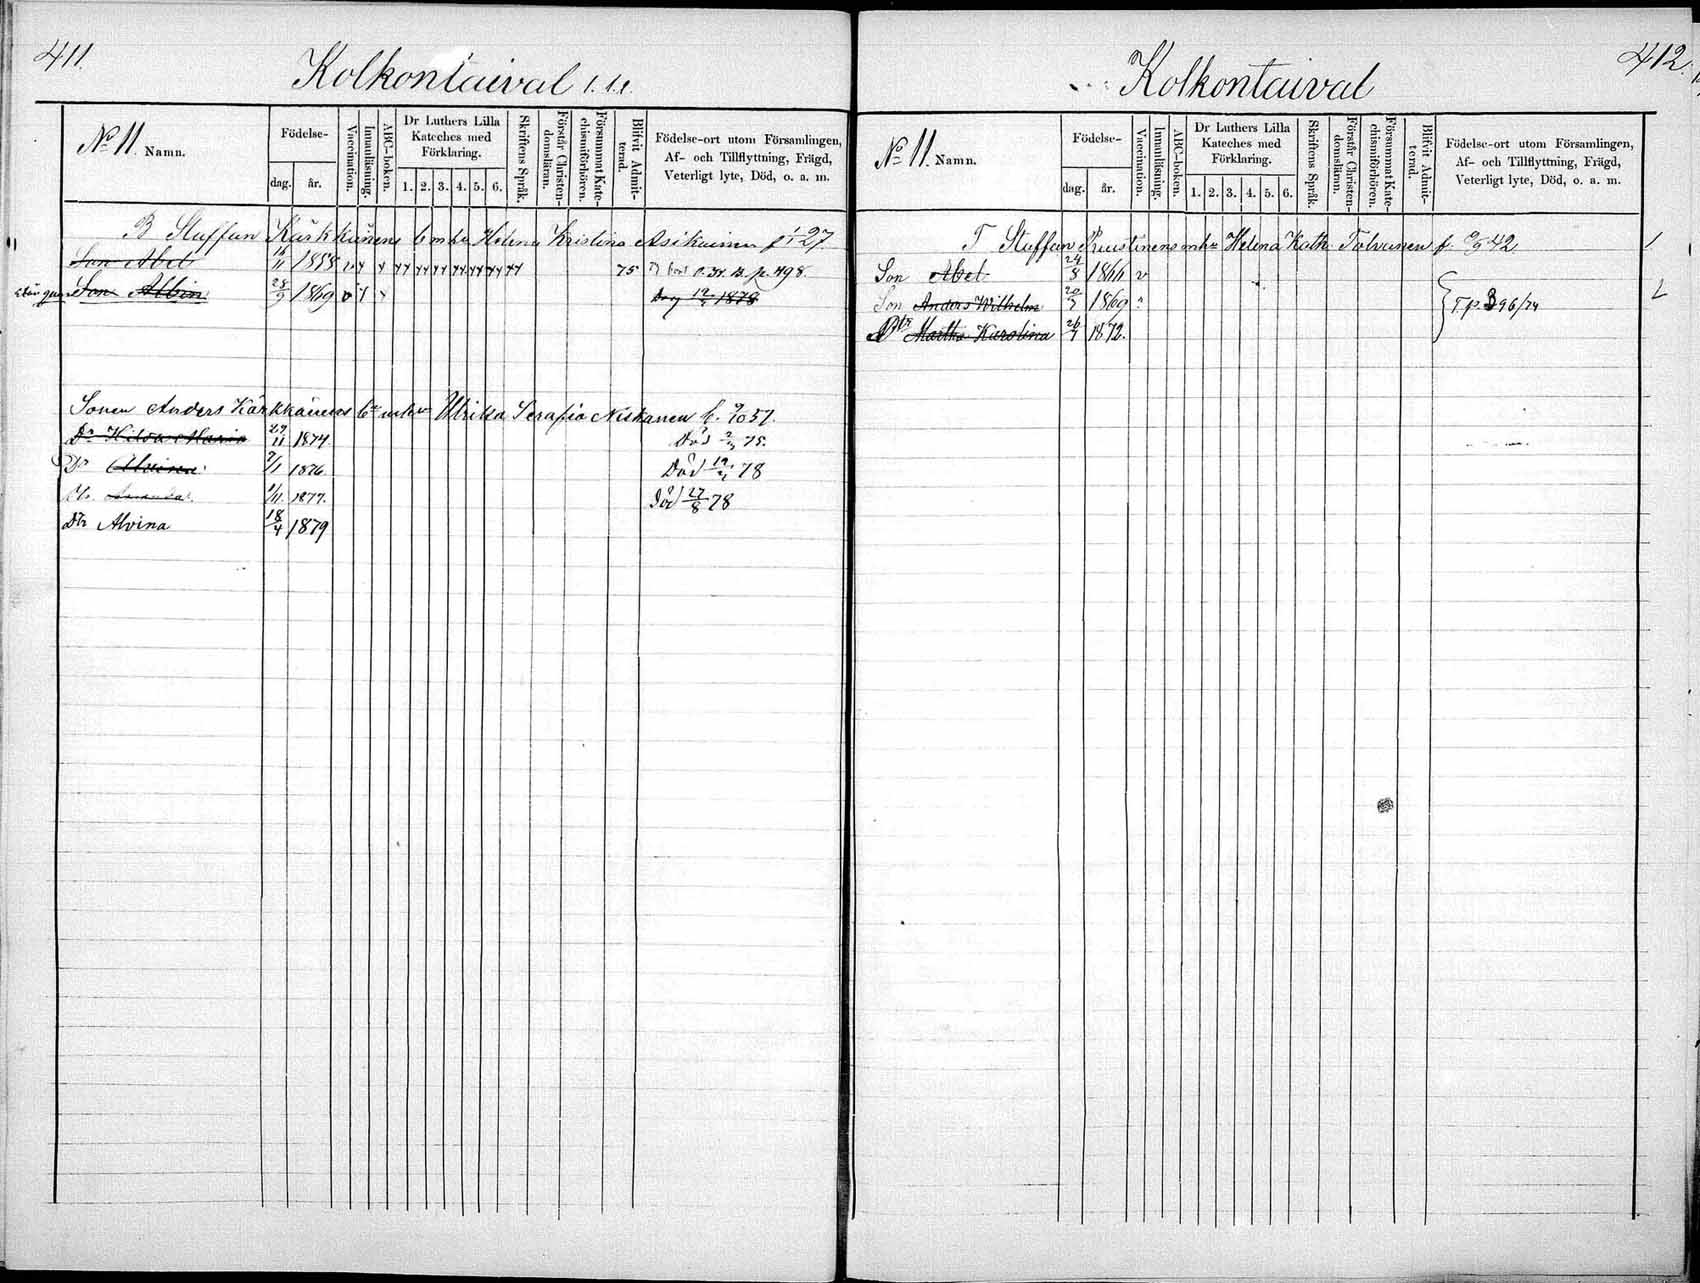 411.
Kolkontaival
No 11. Namn.
Födelse-
dag. år.
Vaccination.
Innanläsning.
ABC-boken.
Dr Luthers Lilla Kateches med Förklaring.
1. 2. 3. 4. 5. 6.
Skriftens Språk.
Förstår Christendomsläran.
Försummat Katechismiförhören.
Blifvit Admitterad.
Födelse-ort utom Församlingen,
Af- och Tillflyttning, Frägd,
Veterligt lyte, Död, o. a. m.
B Staffan Kärkkäinens b mhu Helena Kristina Asikainen 27
Son Abel 11 1858 v 75 p. 498
Son Albin 28/9 1869 v 1878
Sonen Anders Kärkkäinens bs mhu Ulrika Serafia Niskanen f. 9/10 57.
Dr Hilda Maria 29/11 1874 Död 75.
Dr Alvina 2/1 1876. Död 78
Amanda 1/11 1877. Död 27/8 78
Dtr Alvina 18/4 1879
412.
Kolkontaival
No 11. Namn.
Födelse-
dag. år.
Vaccination.
Innanläsning.
ABC-boken.
Dr Luthers Lilla Kateches med Förklaring.
1. 2. 3. 4. 5. 6.
Skriftens Språk.
Förstår Christendomsläran.
Försummat Katechismiförhören.
Blifvit Admitterad.
Födelse-ort utom Församlingen,
Af- och Tillflyttning, Frägd,
Veterligt lyte, Död, o. a. m.
T Staffan Ruustinens mhu Helina Kath. Tolvanen f. 42
Son Abel 24/8 1866 v
Son Anders Wilhelm 20/7 1869 T.p. 396/74
Dtr Martha Karolina 26/7 1872.